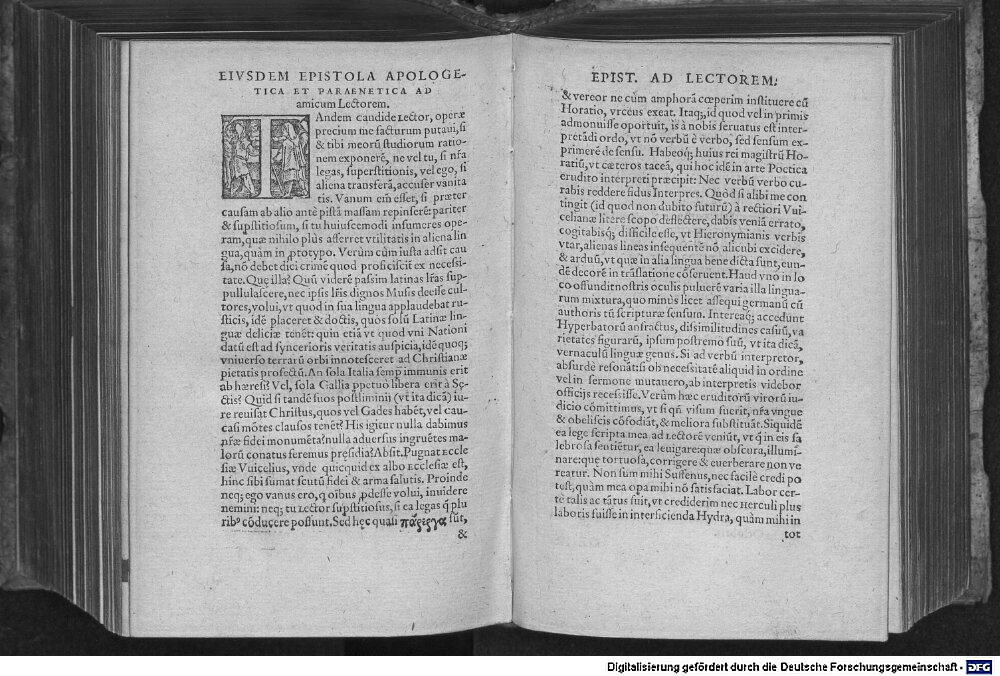 EIVSDEM EPISTOLA APOLOGE-
TICA ET PARAENETICA AD
amicum Lectorem.
TAndem candide Lector, operæ
precium me facturum putaui, si
& tibi meorū studiorum ratio-
nem exponerē, ne vel tu, si nr̄a
legas, superstitionis, vel ego, si
aliena transferā, accuser vanita
tis. Vanum eīm esset, si præter
causam ab alio ante pistā massam repinserē: pariter
& supstitiosum, si tu huiuscemodi insumeres ope-
ram, quæ nihilo plùs afferret vtilitatis in aliena lin
gua, quàm in ꝓtotypo. Verùm cùm iusta adsit cau
sa, nō debet dici crimē quod proficiscit̃ ex necessi-
tate. Quę illa? Quū viderē passim latinas lr̄as sup-
pullulascere, nec ipsis lr̄is dignos Musis deesse cul-
tores, volui, vt quod in sua lingua applaudebat ru-
sticis, idē placeret & doctis, quos solū Latinæ lin-
guæ deliciæ tenēt: quin etiā vt quod vni Nationi
datū est ad syncerioris veritatis auspicia, idē quoq;
vniuerso terrarū orbi innotesceret ad Christianæ
pietatis profectū. An sola Italia semp immunis erit
ab hæresi? Vel, sola Gallia ppetuò libera erit à Sę-
ctis? Quid si tandē suos postliminij (vt ita dicā) iu-
re reuisat Christus, quos vel Gades habēt, vel cau-
casi mōtes clausos tenēt? His igitur nulla dabimus
nr̄æ fidei monumēta? nulla aduersus ingruētes ma-
lorū conatus feremus pręsidia? Absit. Pugnat Eccle
siæ Vuicelius, vnde quicquid ex albo Ecclesiæ est,
hinc sibi sumat scutū fidei & arma salutis. Proinde
neq; ego vanus ero, q̄ oībus ꝓdesse volui, inuidere
nemini: neq; tu Lector supstitiosus, si ea legas q̄ plu
ribꝰ cōducere possunt. Sed hęc quasi πάρεργα sūt,
&
EPIST. AD LECTOREM.
& vereor ne cùm amphorā cœperim instituere cū
Horatio, vrceus exeat. Itaq;, id quod vel in primis
admonuisse oportuit, is à nobis seruatus est inter-
pretādi ordo, vt nō verbū è verbo, sed sensum ex-
primerē de sensu. Habeoq; huius rei magistrū Ho-
ratiū, vt cæteros taceā, qui hoc idē in arte Poetica
erudito interpreti præcipit: Nec verbū verbo cu-
rabis reddere fidus Interpres. Quòd si alibi me con
tingit (id quod non dubito futurū) à rectiori Vui-
celianæ literę scopo deflectere, dabis veniā errato,
cogitabisq; difficile esse, vt Hieronymianis verbis
vtar, alienas lineas insequentē nō alicubi excidere,
& arduū, vt quæ in alia lingua bene dicta sunt, eun-
dē decorē in trāslatione cōseruent. Haud vno in lo
co offundit nostris oculis puluerē varia illa lingua-
rum mixtura, quo minùs licet assequi germanū cū
authoris tū scripturæ sensum. Intereaq; accedunt
Hyperbatorū anfractus, dissimilitudines casuū, va
rietates figurarū, ipsum postremo suū, vt ita dicā,
vernaculū linguæ genus. Si ad verbū interpretor,
absurdè resonāt: si ob necessitatē aliquid in ordine
vel in sermone mutauero, ab interpretis videbor
officijs recessisse. Verùm hæc eruditorū virorū iu-
dicio cōmittimus, vt si qn̄ visum fuerit, nr̄a vngue
& obeliscis cōfodiāt, & meliora substituāt. Siquidē
ea lege scripta mea ad Lectorē veniūt, vt q̄ in eis sa
lebrosa sentiētur, ea leuigare: quæ obscura, illumi-
nare: que tortuosa, corrigere & euerberare non ve
reatur. Non sum mihi Suffenus, nec facilè credi po
test, quàm mea opa mihi nō satisfaciat. Labor cer-
tè talis ac tātus fuit, vt crediderim nec Herculi plus
laboris fuisse in interficienda Hydra, quàm mihi in
tot
Digitalisierung gefördert durch die Deutsche Forschungsgemeinschaft - DFG